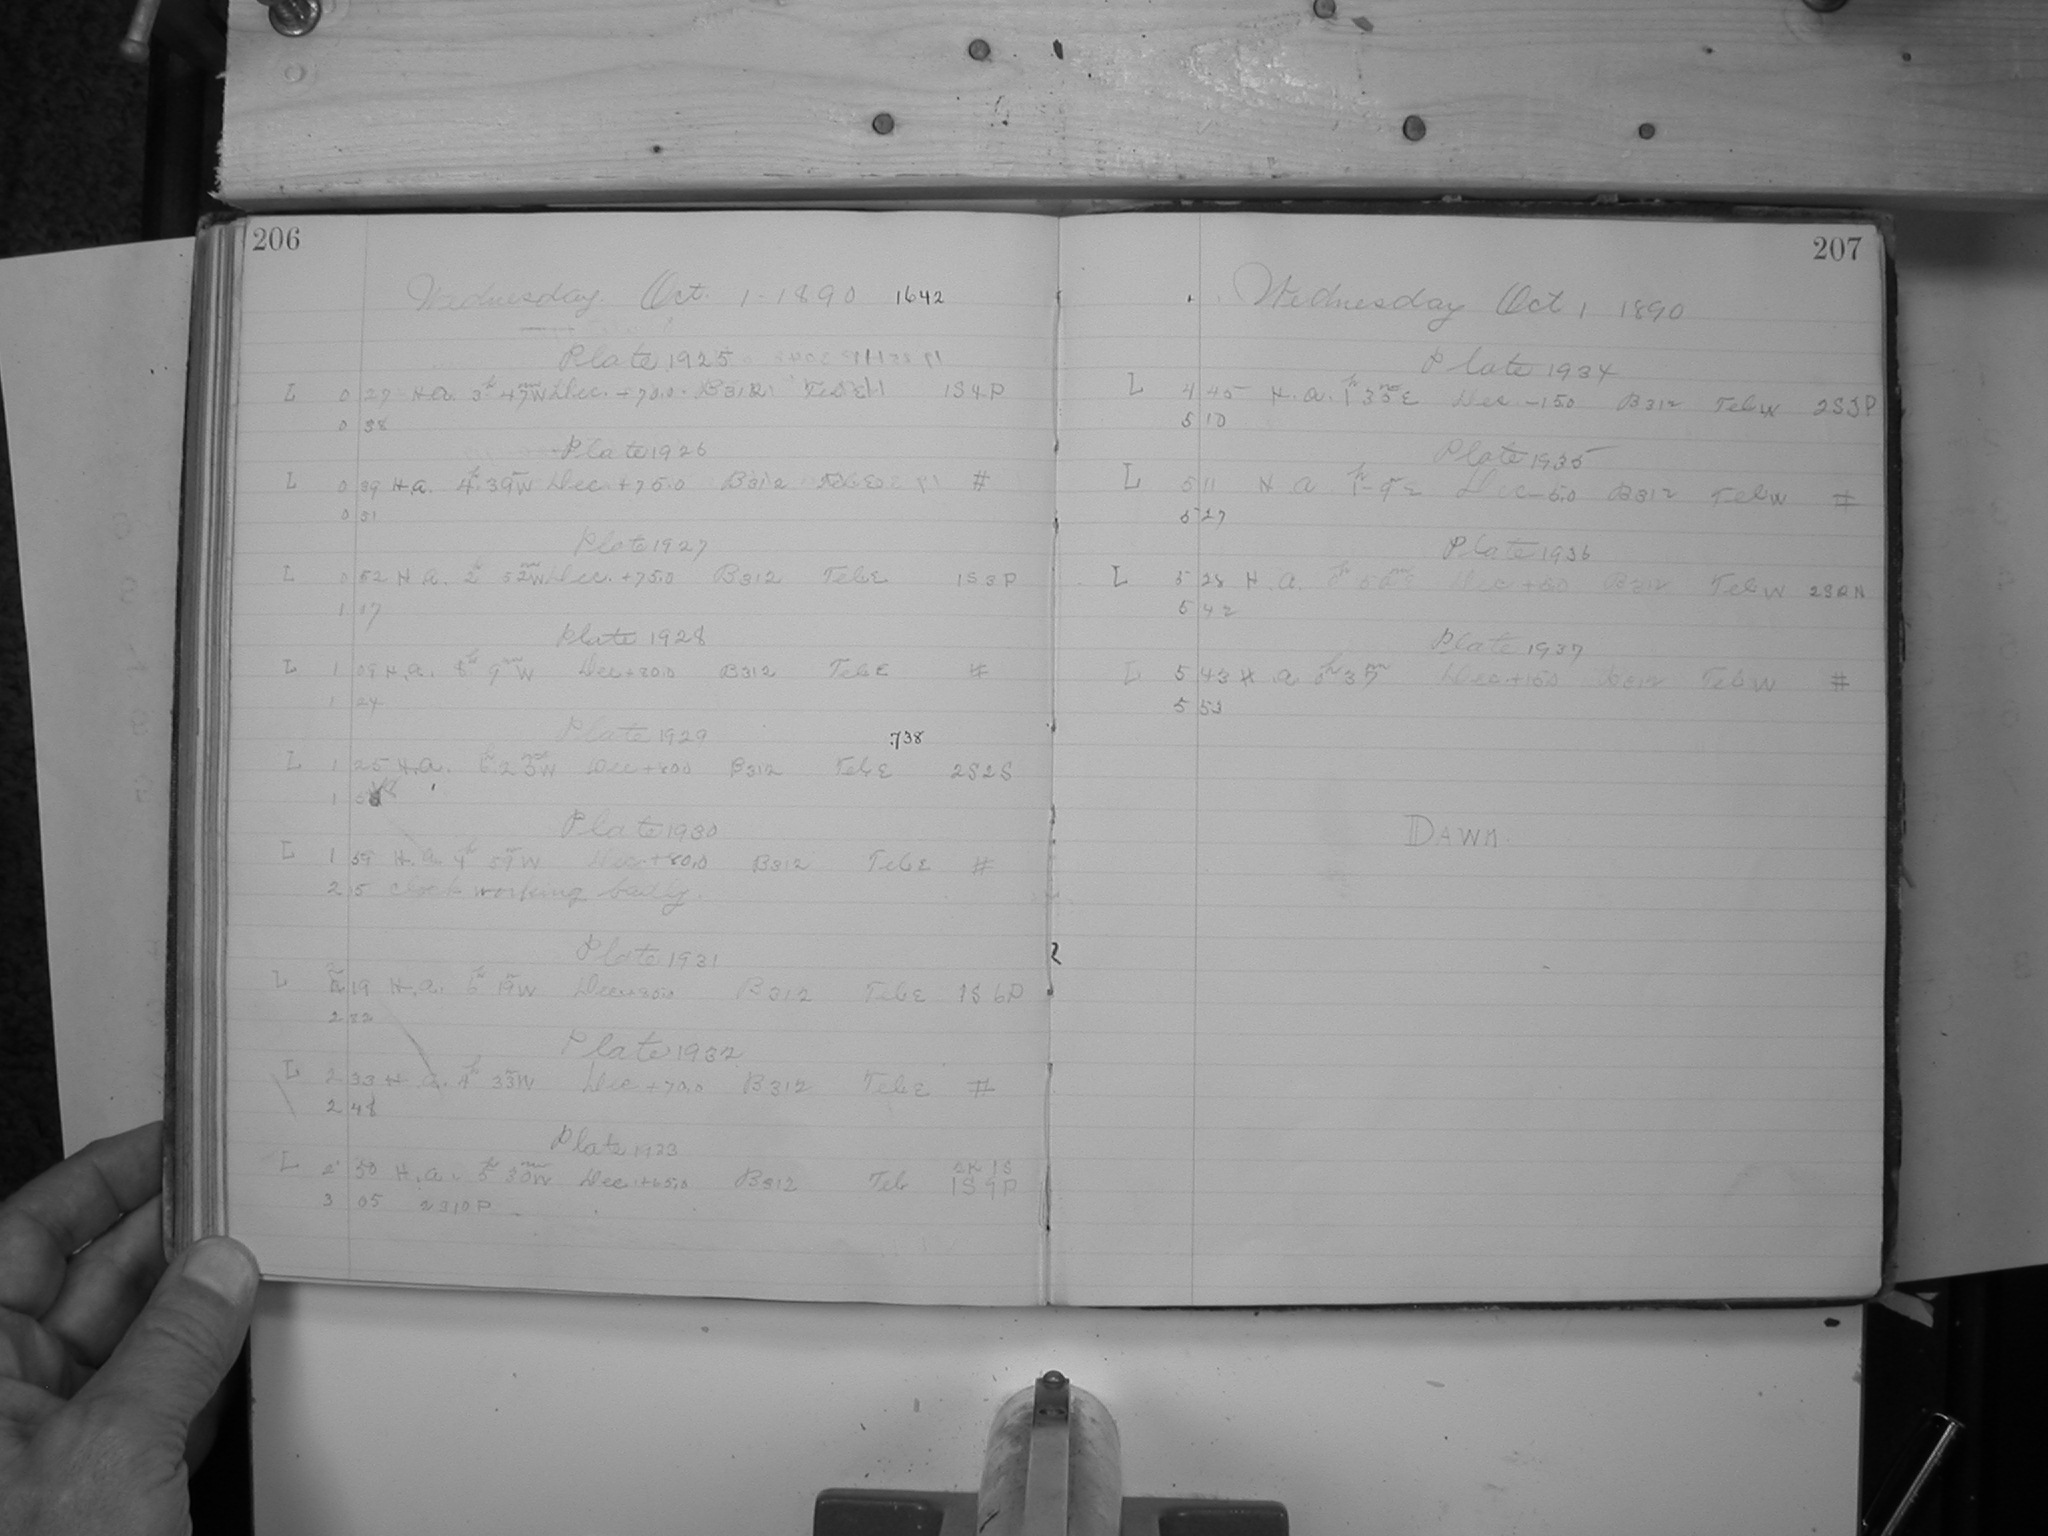 206
Wednesday. Oct. 1-1890 1642
Plate 1925
L 0 27 H.a. 3h 47m W Dec. +70.0 B312 Tel E 1S4P
0 38
Plate 1926
L 0 39 H.a. 4h 39m W Dec. +75.0 B312 #
0 51
Plate 1927
L 0 52 H.a. 2h 52m W Dec. +75.0 B312 Tel E 1S3P
1 17
Plate 1928
L 1 09 H.a. 8h 9m W Dec +80.0 B312 Tel E #
1 24
Plate 1929 738
L 1 25 H.a. 6h 25m W Dec +80.0 B312 Tel E 2S2S
1
Plate 1930
L 1 59 H.a. 4h 59m W Dec +80.0 B312 Tel E #
2 5 clock working badly.
Plate 1931
L 2 19 H.a. 6h 19m W Dec B312 Tel E 1S6P
2 32
Plate 1932
L 2 33 H.a. 4h 33m W Dec +70.0 B312 Tel E #
2 48
Plate 1933
L 2 50 H.a. 5h 30m W Dec +65.0 B312 Tel 1S9P
3 05 2S10P
207
Wednesday Oct 1 1890
Plate 1934
L 4 45 H.a. 1h 35m E Dec -15.0 B312 Tel W 2S3P
5 10
Plate 1935
L 5 11 H a 1h 9m E Dec -5.0 B312 Tel W #
5 27
Plate 1936
L 5 28 H.a. Dec +5.0 B312 Tel W
5 42
Plate 1937
L 5 43 H a 0h 37m Dec +15.0 B312 Tel W #
5 53
DAWN.